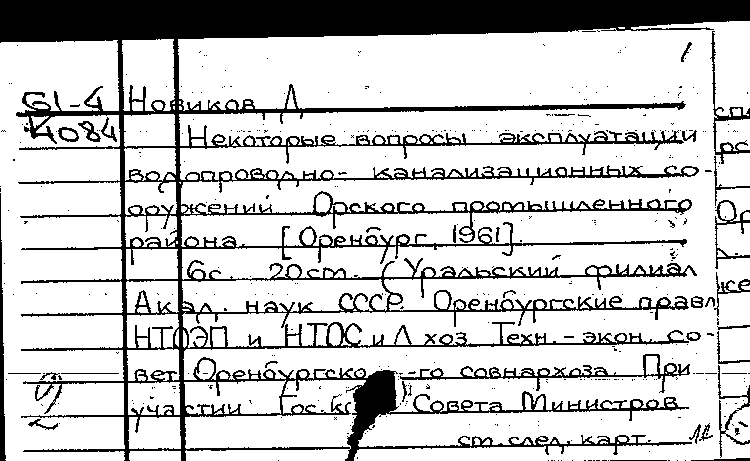 1
61-4 Новиков, Д.
К084 Некоторые вопросы эксплуатации
водопроводно-канализационных со-
оружений Орского промышленного
района. [Оренбург, 1961].
6с. 20см. (Уральский филиал
Акад. наук СССР. Оренбургские правл
НТОЭП и НТОС и Л хоз. Техн.-экон. со-
вет Оренбургско -го совнархоза. При
участии Гос. Совета Министров
см. след. карт.